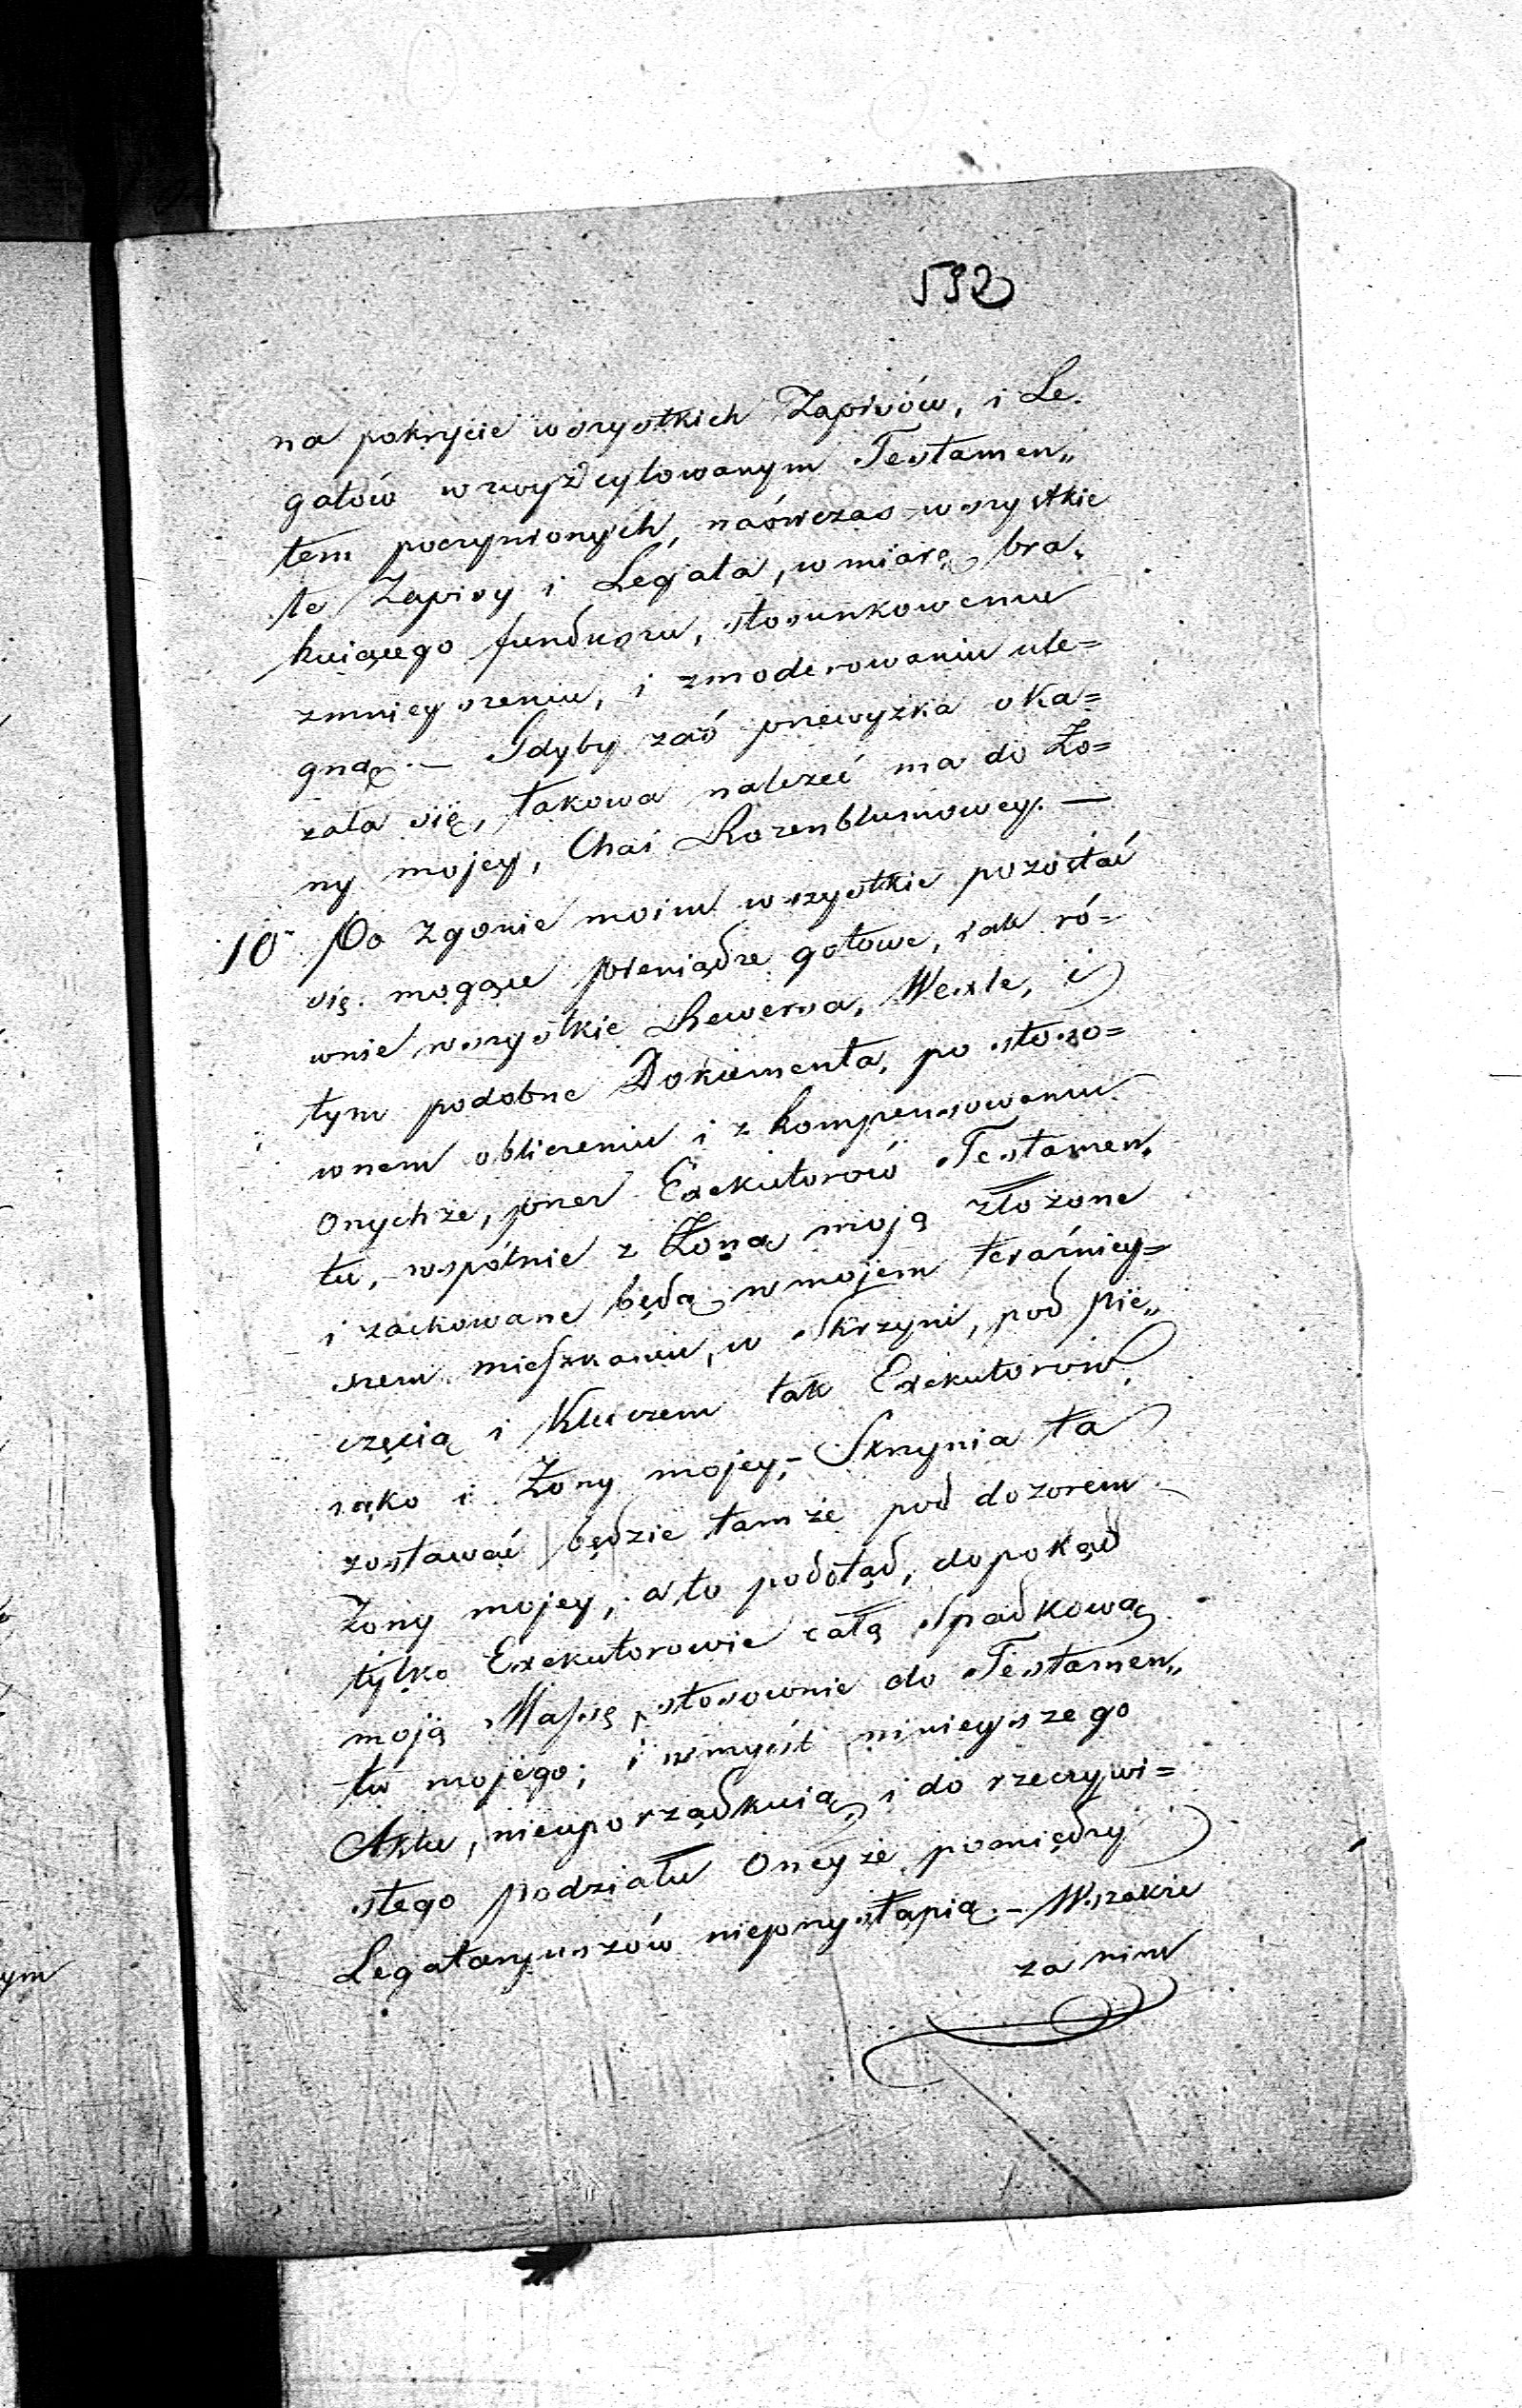 592
na pokrycie wszystkich Zapisów, i Le„
gatów wzwyżcytowanym Testamen„
tem poczynionych, naówczas wszystkie
te Zapisy i Legata, w miarę bra„
kuiącego funduszu, stosunkowemu
zmnieyszeniu, i zmoderowaniu ule=
gną. — Gdyby zaś przewyżka oka=
zała się, takowa należeć ma do Żo=
ny mojey, Chai Rozenblumowey. —
10 Po zgonie moim wszystkie pozostać
się mogące pieniądze gotowe, iak ró=
wnie wszystkie Rewersa, Wexle, i
tym podobne Dokumenta, po stoso=
wnem obliczeniu i zkompensowaniu
Onychże, przez Exekutorów Testamen„
tu, wspólnie z Żoną moją złożone
i zachowane będą w mojem teraźniey=
szem mieszkaniu, w Skrzyni, pod pie„
częcią i Kluczem tak Exekutorów,
iako i Żony mojey;— Skrzynia ta
zostawać będzie tamże pod dozorem
Żony mojey, a to podotąd, dopokąd
tylko Exekutorowie całą Spadkową
moją Massę, stosownie do Testamen„
tu mojego; i w myśl ninieyszego
Aktu, nieuporządkuią, i do rzeczywi=
stego podziału Oneyże pomiędzy
Legataryuszów nieprzystąpią. — Wszakże
za nim
ym